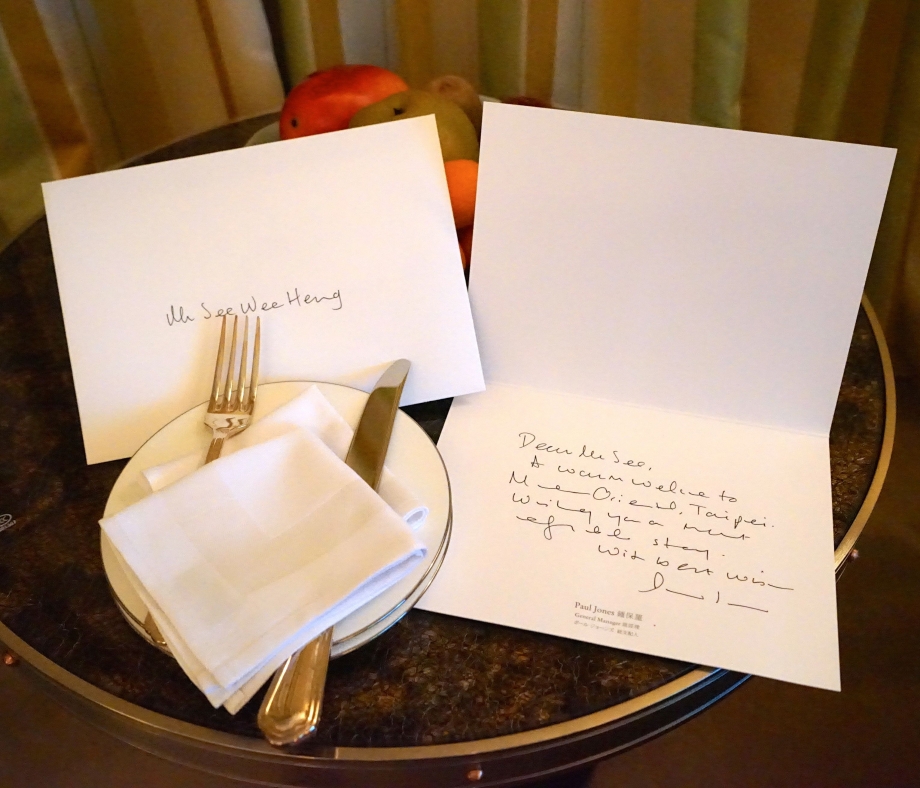 Mr See Wee Heng
Dear Mr See,
A warm welcome to
Mandarin Oriental, Taipei.
Wishing you a most
enjoyable stay.
With best wishes
Paul Jones
General Manager 總經理
ポール・ジョーンズ 総支配人